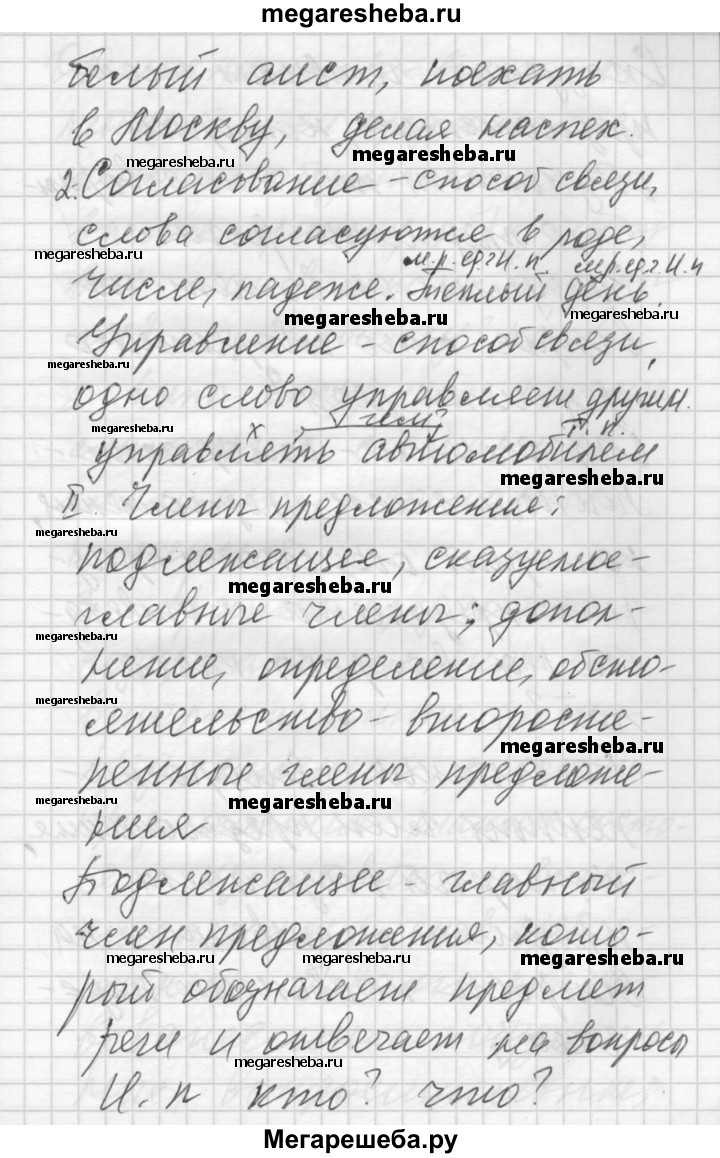 megaresheba.ru
белый аист, поехать
в Москву, делая наспех.
megaresheba.ru megaresheba.ru
2. Согласование - способ связи,
слова согласуются в роде,
megaresheba.ru м.р. ед.ч И.п. м.р. ед.ч. И.ч
числе, падеже. Теплый день.
megaresheba.ru megaresheba.ru
Управление - способ связи,
megaresheba.ru
одно слово управляет другим.
megaresheba.ru х чем? Т. п.
управлять автомобилем
megaresheba.ru
II. Члены предложения:
megaresheba.ru
подлежащее, сказуемое-
megaresheba.ru
главные члены; допол-
megaresheba.ru
нение, определение, обсто-
megaresheba.ru
ятельство - второсте-
megaresheba.ru
пенные члены предложе-
megaresheba.ru megaresheba.ru
ния
Подлежащее - главный
член предложения, кото-
megaresheba.ru megaresheba.ru megaresheba.ru
рый обозначает предмет
речи и отвечает на вопросы
megaresheba.ru
И. п кто? что?
Мегарешеба.ру